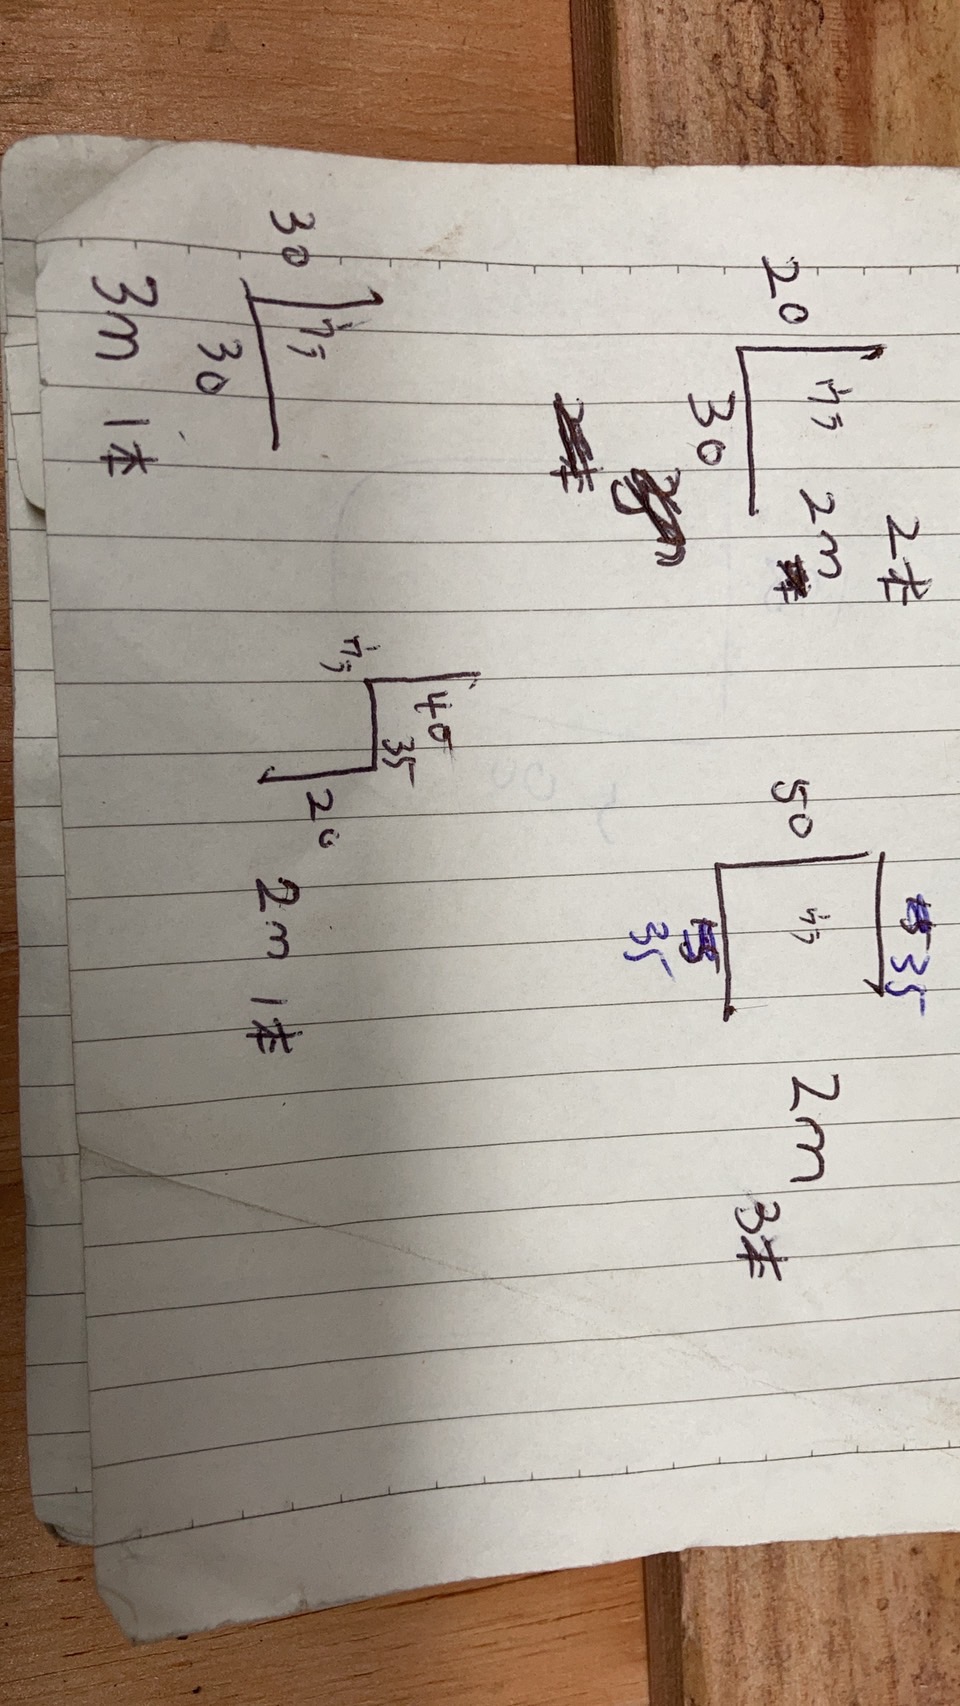 2本
20
2m
30
35
50
35
2m
3本
40
35
20
2m 1本
30
30
3m 1本